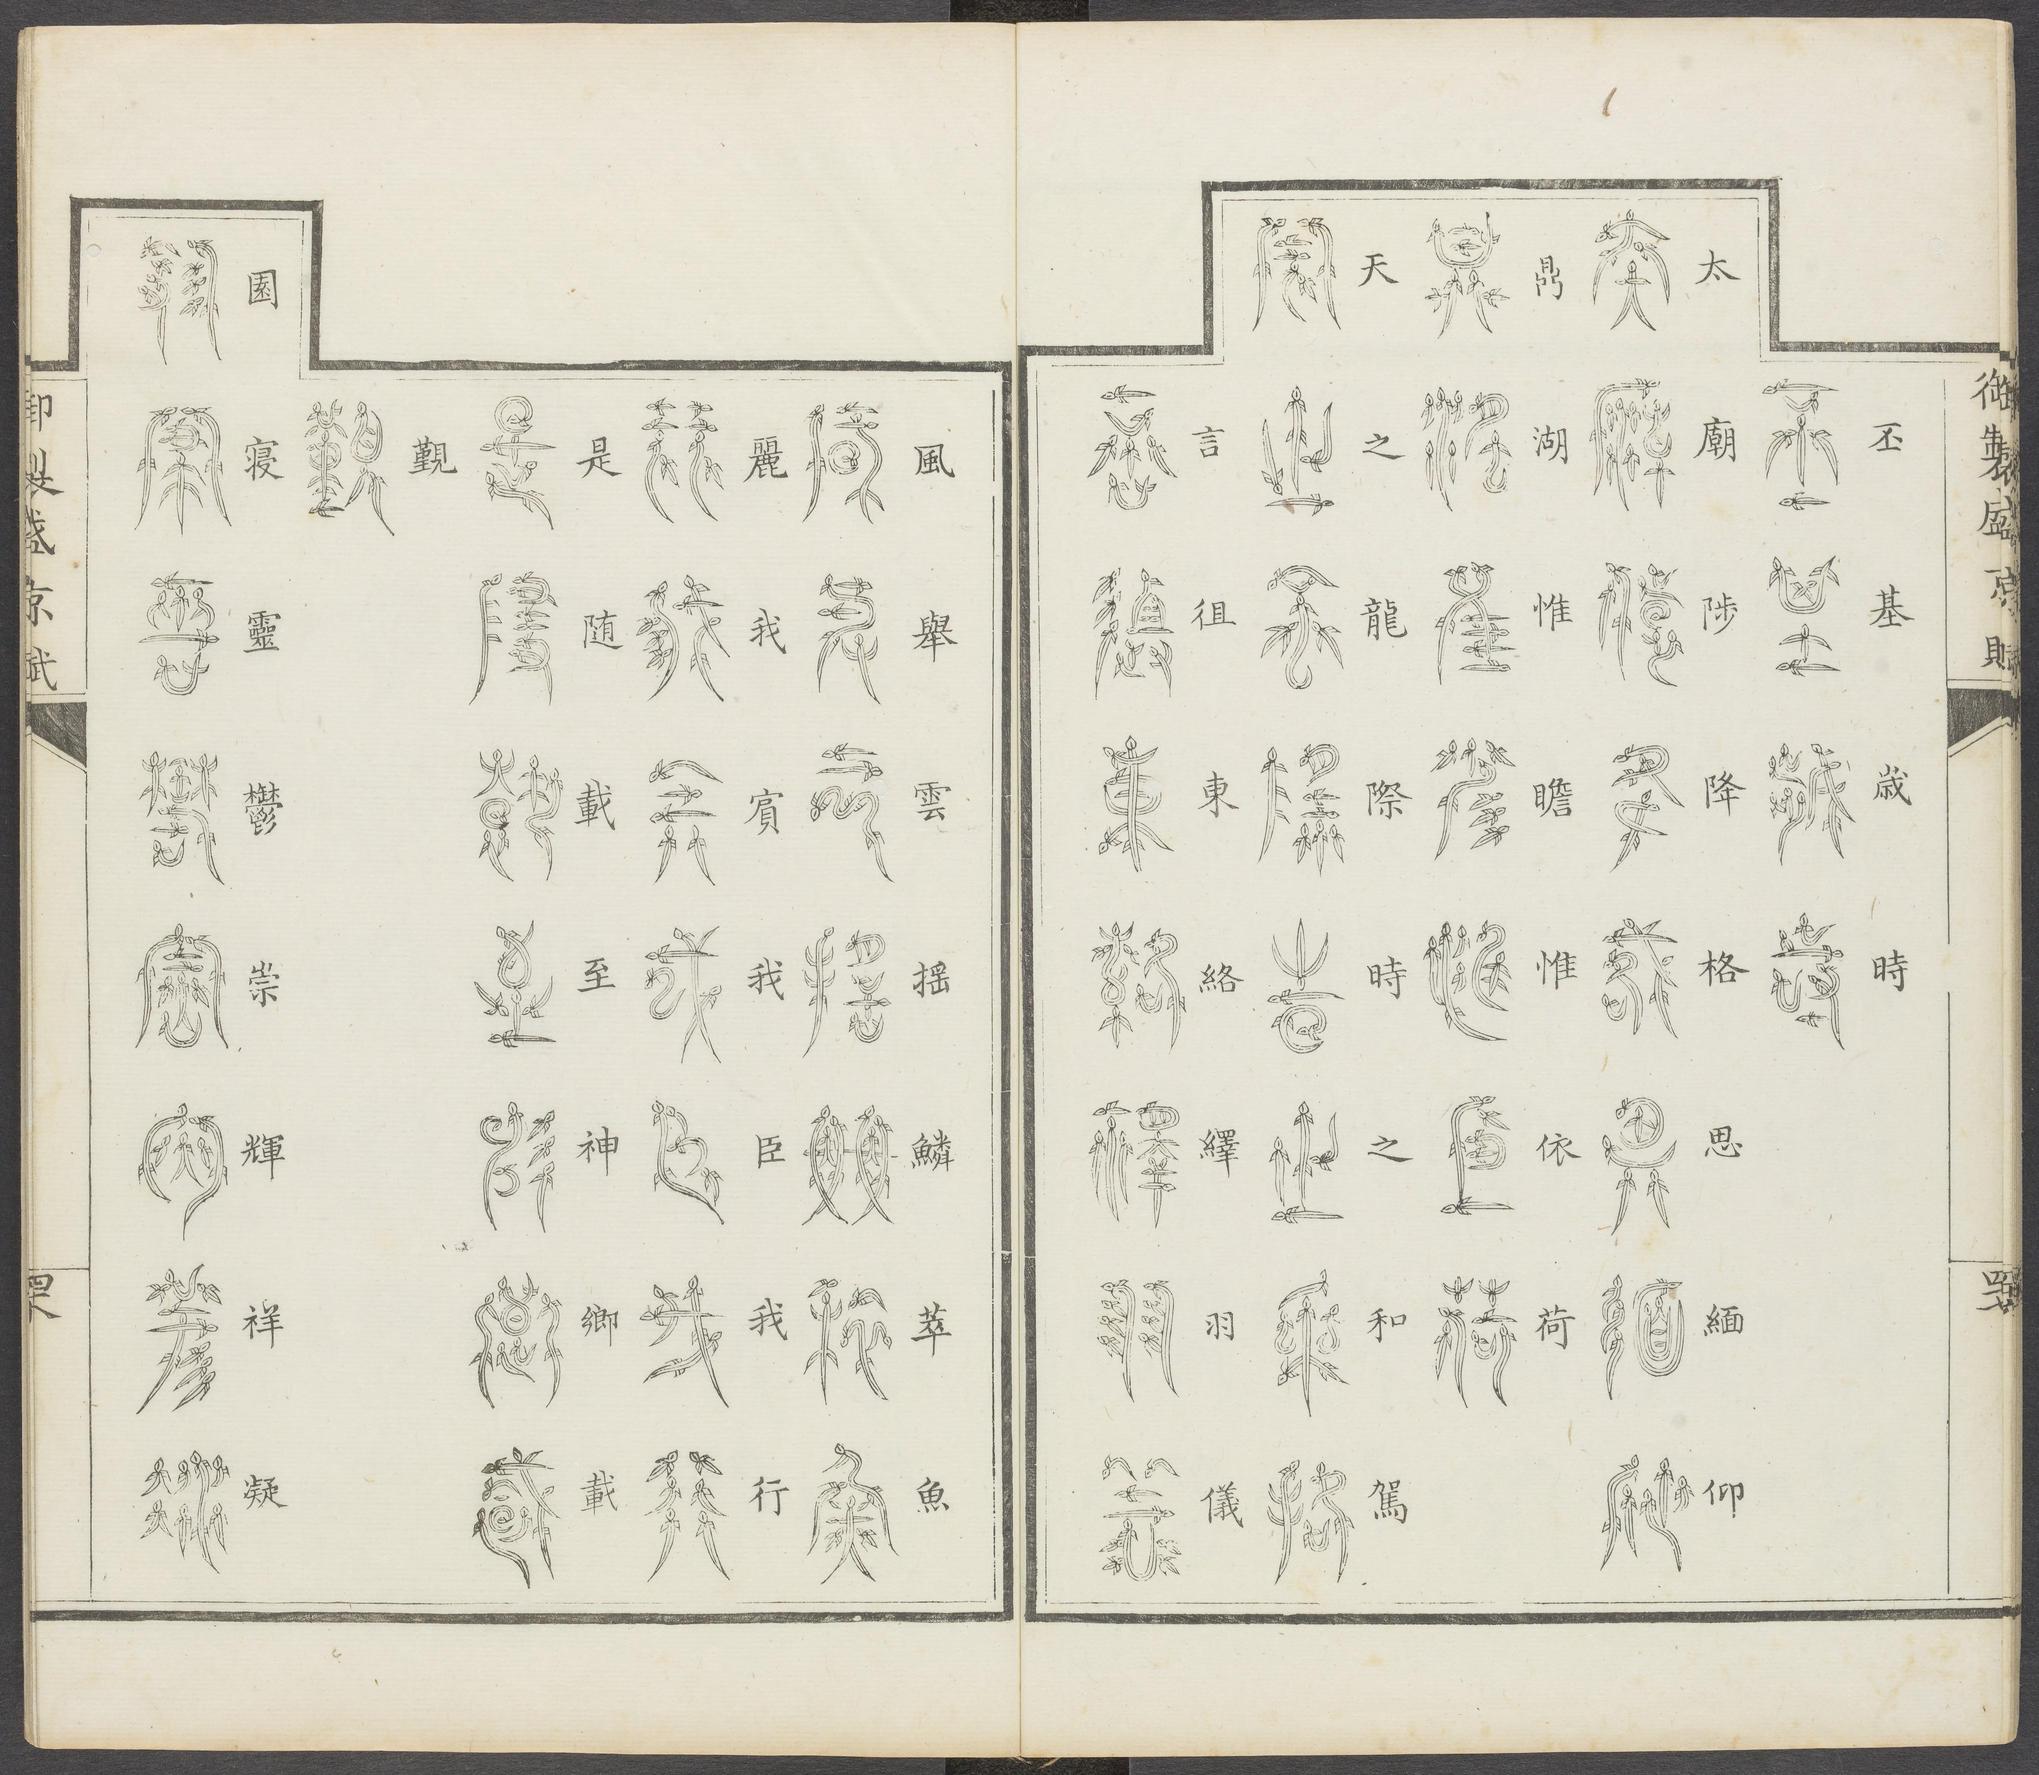 御製盛京賦
丕基歲時
太廟陟降格思緬仰
鼎湖惟瞻惟依荷
天之龍際時之和駕
言徂東絡繹羽儀
風舉雲搖鱗萃魚
麗我賓我臣我行
是随載至神鄉載
觀
園寢靈鬱崇輝祥凝